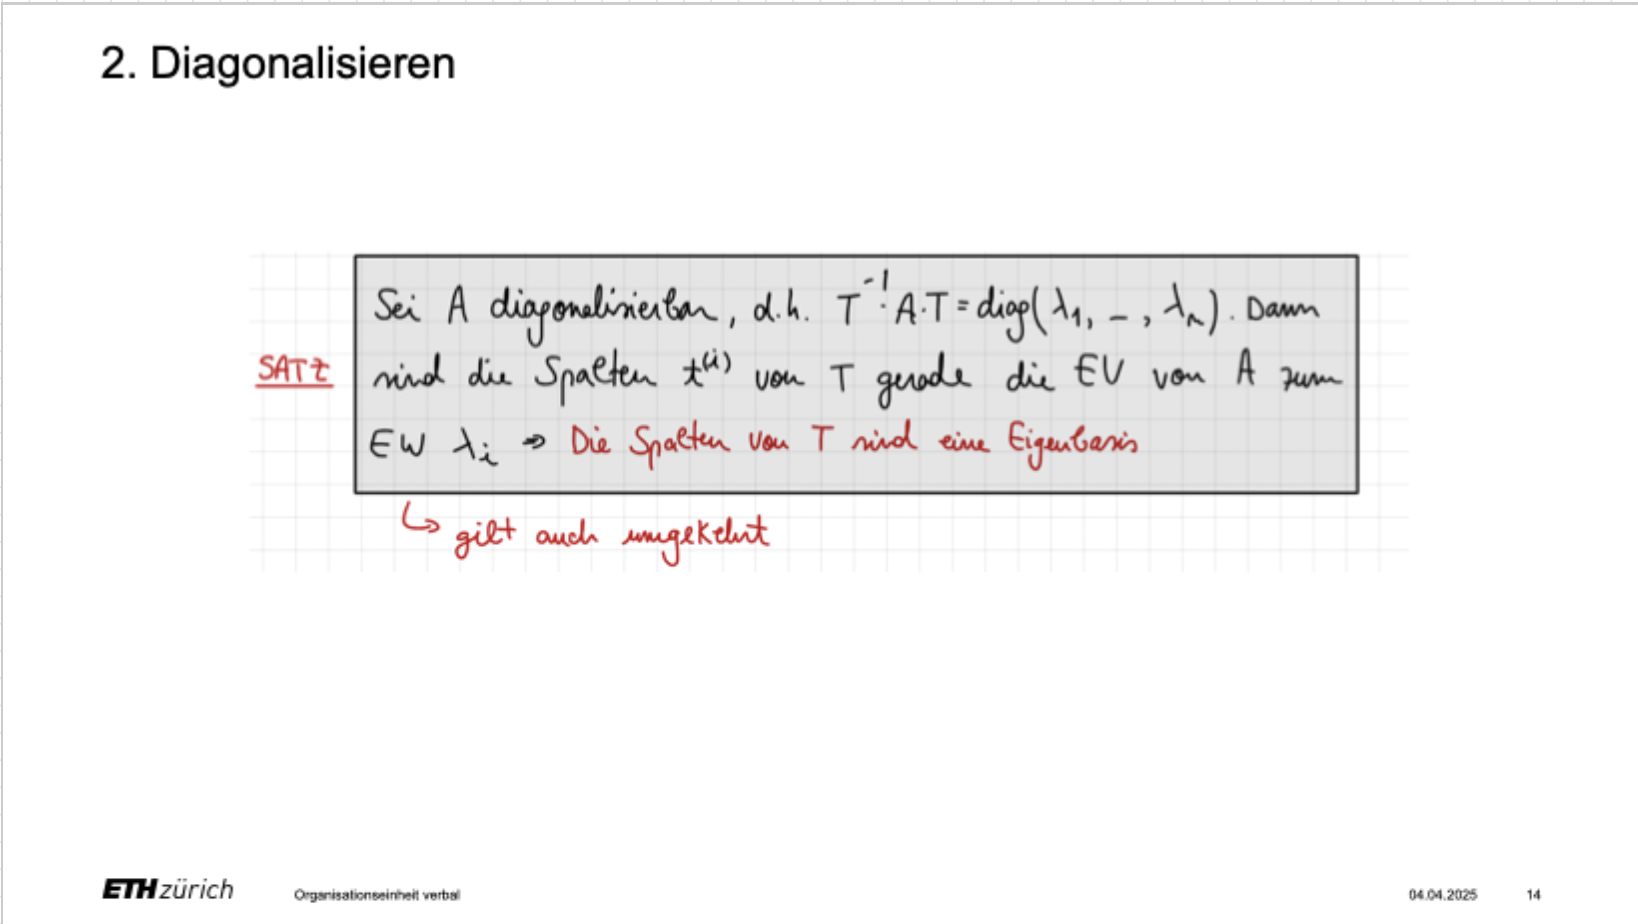 2. Diagonalisieren
Sei A diagonalisierbar, d.h. T⁻¹·A·T = diag(λ₁, –, λₙ). Dann
SATZ
sind die Spalten t⁽ⁱ⁾ von T gerade die EV von A zum
EW λᵢ ⇒ Die Spalten von T sind eine Eigenbasis
↳ gilt auch umgekehrt
ETH zürich
Organisationseinheit verbal
04.04.2025
14